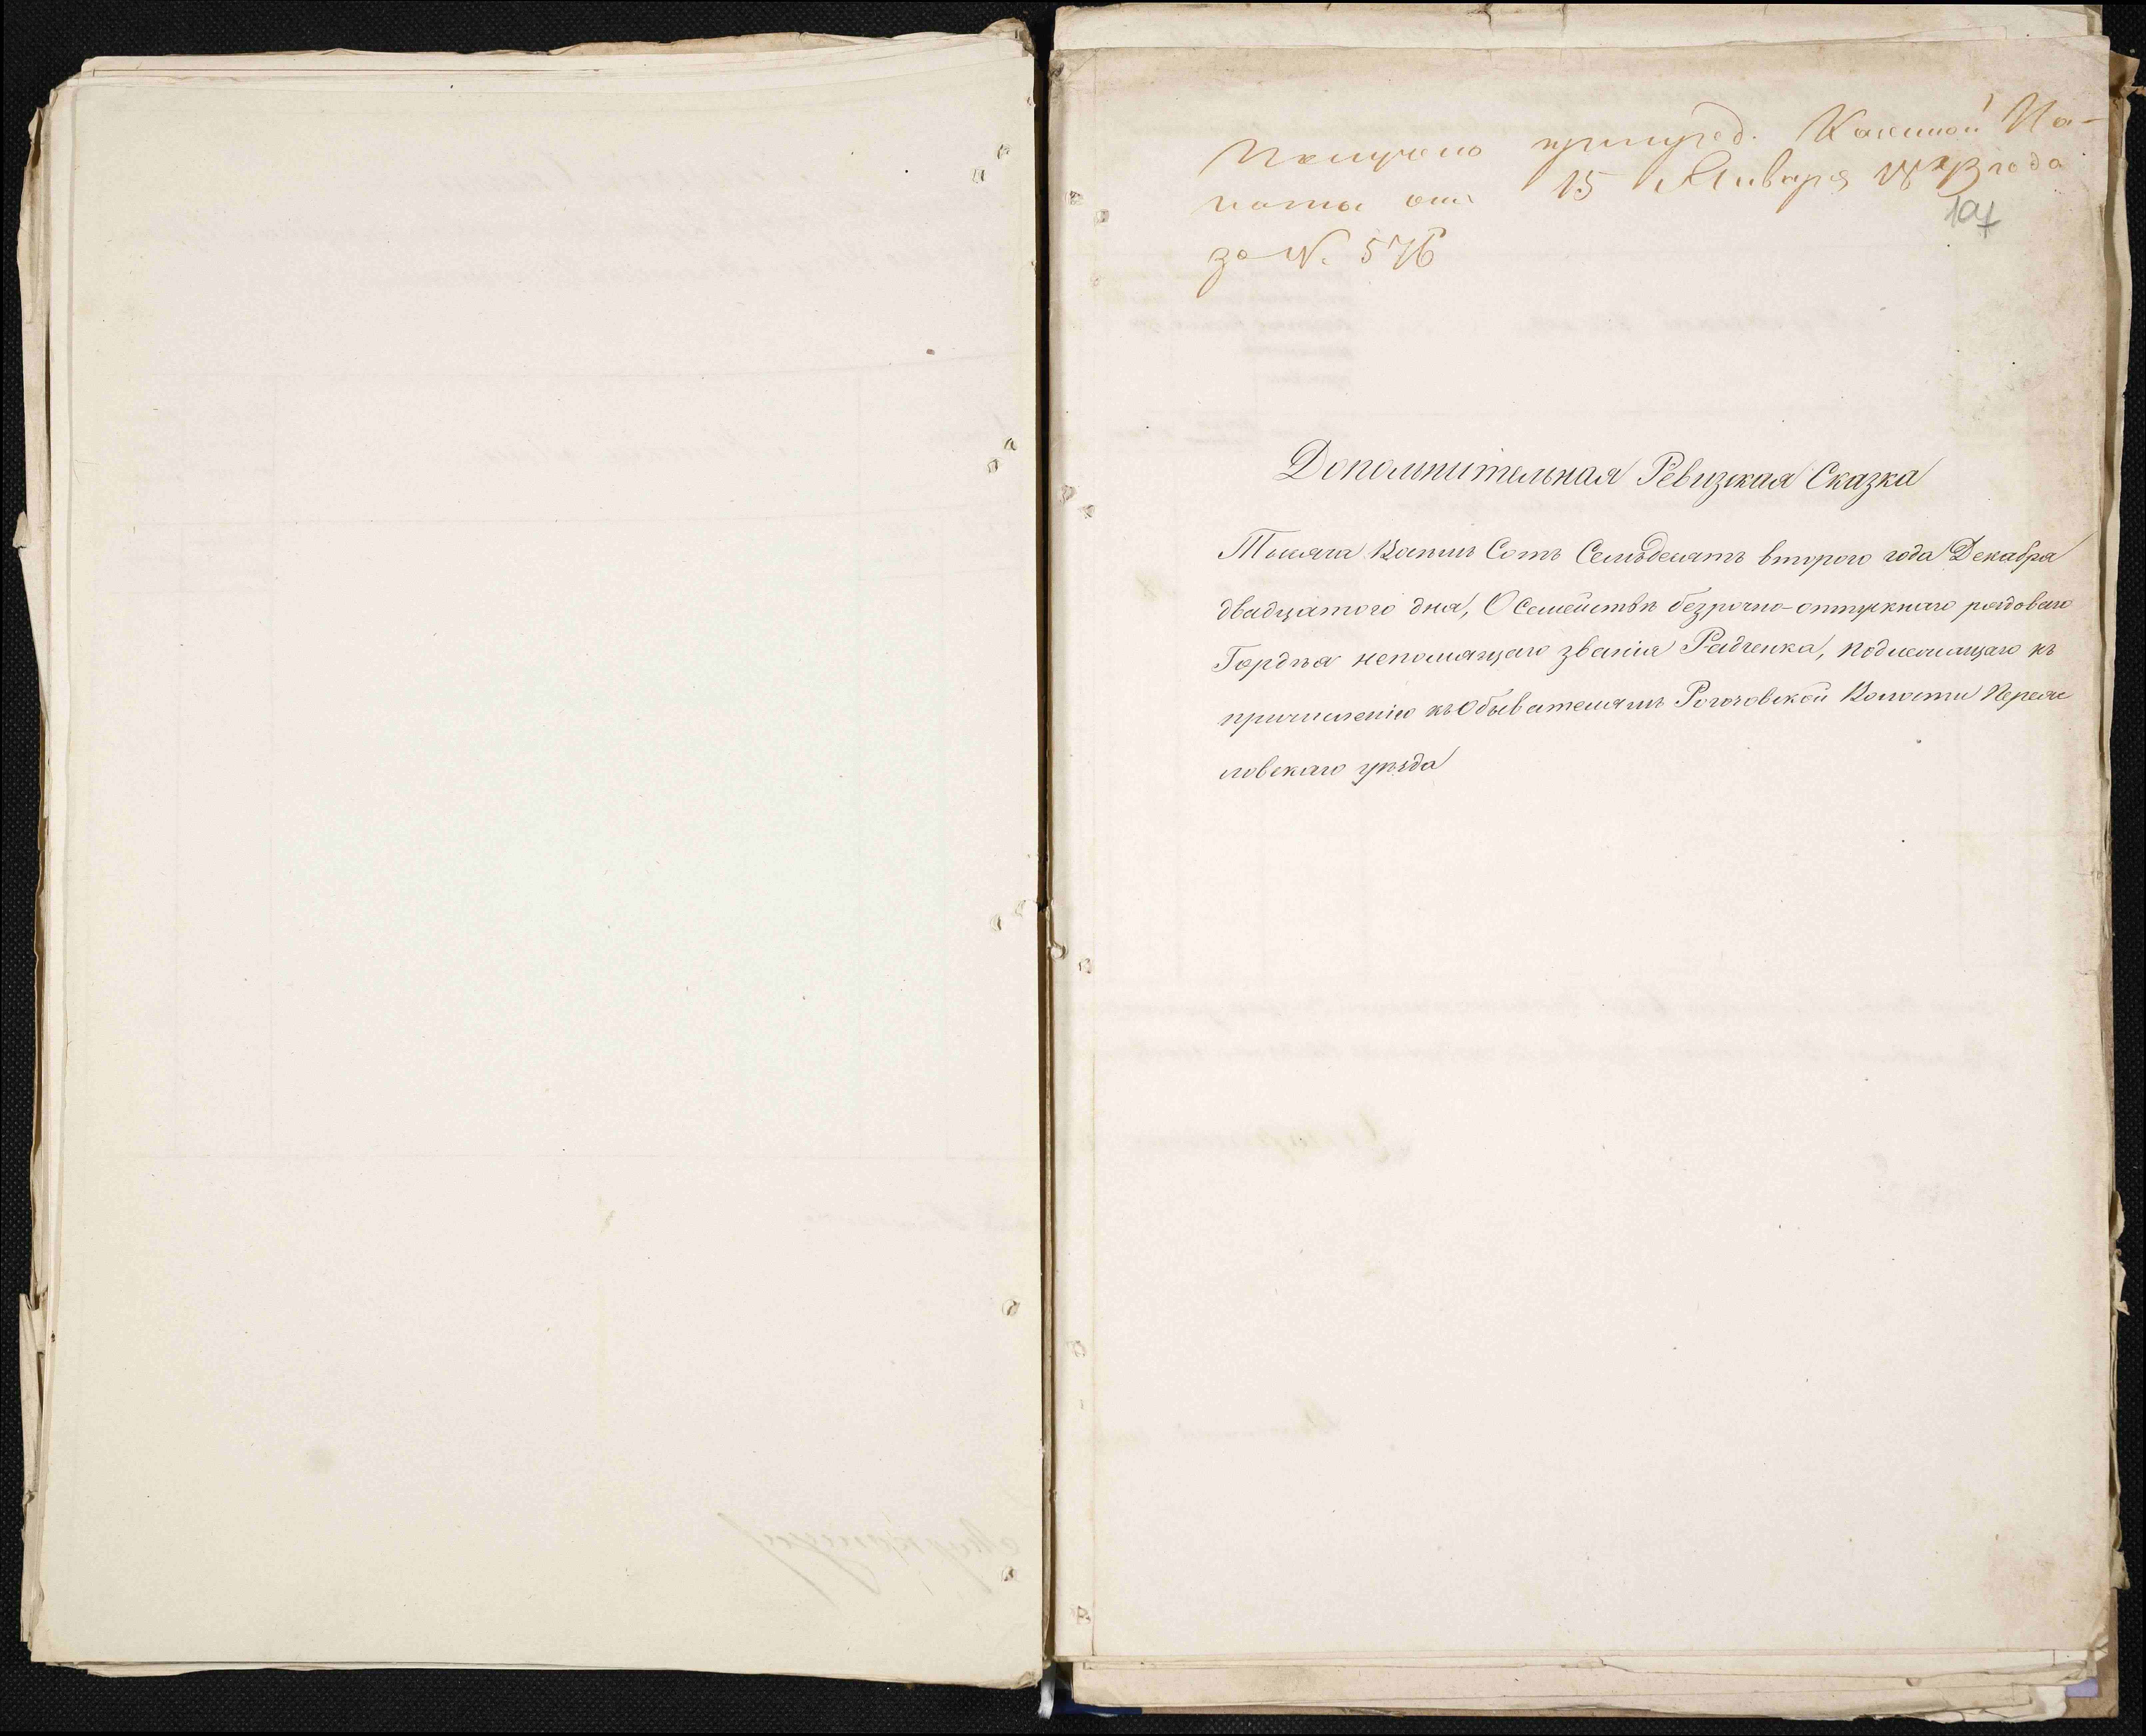 Получено припред. Казенной Па-
латы отъ 15 Января 1873 года
107
за №. 576
Дополнительная Ревизская Сказка
Тысяча Восемь Сотъ Семьдесятъ втораго года Декабря
двадцатого дня, О Семействѣ безрочно-отпускнаго рядоваго
Гордѣя непомнящаго званія Радченка, подлежащаго къ
причисленію къ Обывателямъ Рогозовской Волости Переяс
лавскаго уѣзда